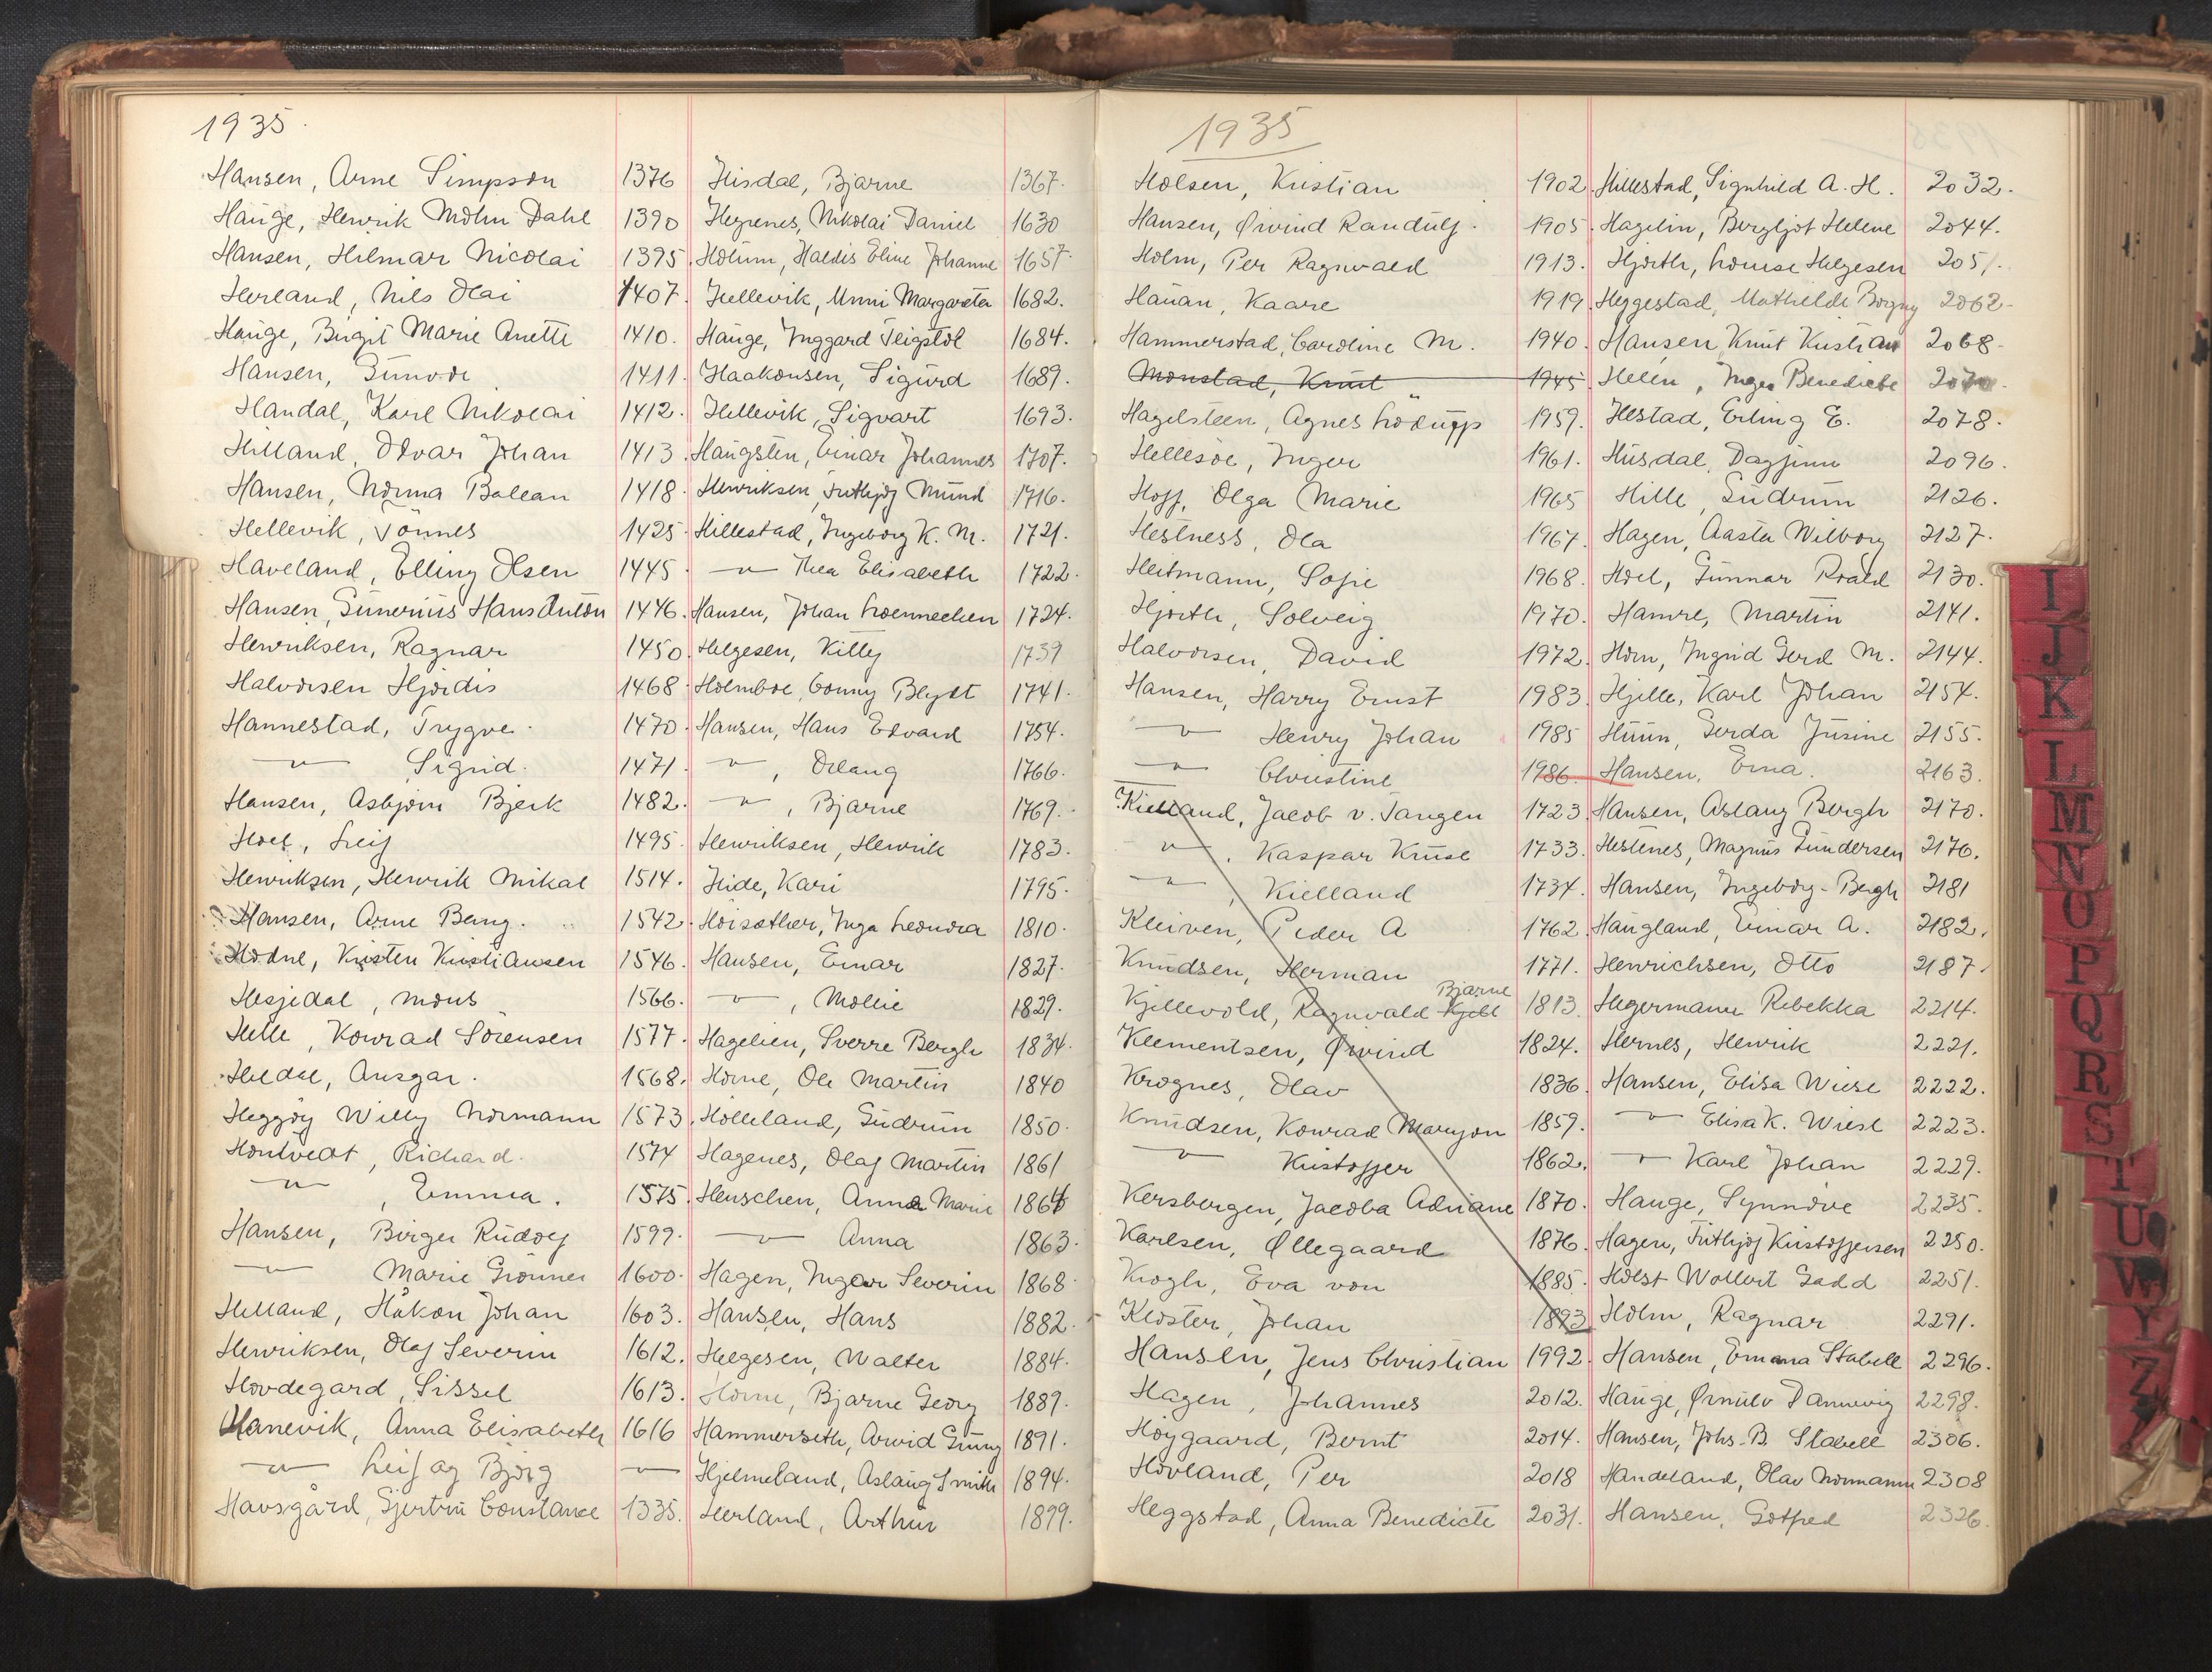 1935.
Hansen, Arne Simpson 1376
Hauge, Henrik Mohn Dahl 1390
Hansen, Hilmar Nicolai 1395
Herland, Nils Olai 1407.
Hauge, Birgit Marie Anette 1410.
Hansen, Gunvor 1411.
Handal, Karl Nikolai 1412.
Hilland, Odvar Johan 1413.
Hansen, Norma Balean 1418.
Hellevik, Tönnes 1425
Haveland, Elling Olsen 1445
Hansen, Gunerius Hans Anton 1446.
Henriksen, Ragnar 1450.
Halvorsen Hjördis 1468
Hannestad, Trygve. 1470
" Sigrid. 1471
Hansen, Asbjörn Bjerk 1482.
Hoel, Leif 1495
Henriksen, Henrik Mikal 1514.
Hansen, Arne Berg. 1542.
Hodne, Kristen Kristiansen 1546.
Hesjedal, Mons 1566.
Helle, Konrad Sörensen 1577.
Heldal, Ansgar. 1568.
Heggöy Willy Normann 1573.
Hontvedt, Richard. 1574
", Emma. 1575.
Hansen, Birger Rudolf 1599.
" Marie Grönner 1600.
Helland, Håkon Johan 1603.
Henriksen, Olaf Severin 1612.
Hovdegard, Sissel 1613.
Hanevik, Anna Elisabeth 1616
" Leif og Björg "
Havsgård, Gjertrü Constance 1335.
Hisdal, Bjarne 1367.
Nikolai Daniel 1630
Holum, Haldis Eline Johanne 1657.
Hellevik, Unni Margareta 1682.
Hauge, Inggard Teigstöl 1684.
Haakonsen, Sigurd 1689.
Hellevik, Sigvart 1693.
Haugsten, Einar Johannes 1707.
Henriksen, Frithjof Mund 1716.
Hillestad, Ingeborg K. M. 1721.
" Thea Elisabeth 1722.
Hansen, Johan Loennechen 1724.
Helgesen, Kitty 1739
Holmboe, Conny Blytt 1741.
Hansen, Hans Edvard 1754.
", Dilaug 1766.
", Bjarne 1769.
Henriksen, Henrik 1783.
Hide, Kari 1795.
Höisæther, Inga Leonora 1810.
Hansen, Einar 1827.
", Mollie 1829.
Hagelien, Sverre Bergh 1834.
Horne, Ole Martin 1840
Hölleland, Gudrun 1850.
Hagenes, Olaf Martin 1861
Henschen, Anna Marie 1864
" Anna 1863.
Hagen, Inger Severin 1868
Hansen, Hans 1882.
Helgesen, Walter 1884.
Horne, Bjarne Georg 1889.
Hammerseth, Arvid Gunny 1891.
Hjelmeland, Aslaug Smith 1894.
Herland, Arthur 1899.
1935
Holsen, Kristian 1902.
Hansen, Øivind Randulf. 1905.
Holm, Per Ragnvald 1913.
Hauan, Kaare 1919.
Hammerstad, Caroline M. 1940.
Monstad, Knut 1945
Hagelsteen, Agnes Lödrupp 1959.
Hellesöe, Inger 1961.
Hoff, Olga Marie 1965
Hestness, Ola 1967.
Heitmann, Sofie 1968.
Hjorth, Solveig 1970.
Halvorsen, David 1972.
Hansen, Harry Ernst 1983.
" Henry Johan 1985
" Christine 1986.
Kielland, Jacob v. Tangen 1723.
". Kaspar Kruse 1733.
", Kielland 1734.
Kleiven, Peder A 1762.
Knudsen, Herman 1771.
Bjarne
Kjellevold, Ragnvald Kjell 1813.
Klementsen, Øivind 1824.
Krognes, Olav 1836.
Knudsen, Konrad Maryon 1859.
" Kristoffer 1862.
Kersbergen, Jacoba Adriane 1870.
Karlsen, Øllegaard 1876.
Krogh, Eva von 1885.
Kloster, Johan 1893
Hansen, Jens Christian 1992.
Hagen, Johannes 2012.
Höygaard, Bernt 2014.
Hovland, Per 2018
Heggstad, Anna Benedicte 2031.
Hillestad, Signhild A. H. 2032.
Hagelin, Bergljot Helene 2044.
Hjorth, Louise Helgesen 2051.
Heggestad, Mathilde Borgny 2062.
Hansen Knut Kristian 2068.
Helén, Inger Benedicte 2070.
Hestad, Erling E. 2078.
Husdal, Dagfinn 2096.
Hille, Gudrun 2126.
Hagen, Aasta Wilborg 2127.
Hoel, Gunnar Roald 2130.
Hamre, Martin 2141.
Horn, Ingrid Gerd M. 2144.
Hjelle, Karl Johan 2154.
Huun, Gerda Jusine 2155.
Hansen, Erna. 2163.
Hansen, Aslaug Bergh 2170.
Hestenes, Magnus Gundersen 2176.
Hansen, Ingeborg-Bergh 2181
Haugland, Einar A. 2182.
Henrichsen, Otto 2187.
Hegermann Rebekka 2214.
Hernes, Henrik 2221.
Hansen, Elisa Wiese 2222.
" Elisa K. Wiese 2223.
" Karl Johan 2229.
Hauge, Synnöve 2235.
Hagen, Frithjof Kristoffersen 2250.
Holst Wollert Gadd 2251.
Holm, Ragnar 2291.
Hansen, Emma Stabell 2296.
Hauge, Ørnulv Dannevig 2298.
Hansen, Johs. B. Stabell 2306.
Handeland, Olav Normann 2308
Hansen, Gotfred 2326.
I
J
K
L
M
N
O
P
Q
R
S
T
U
W
Y
Z